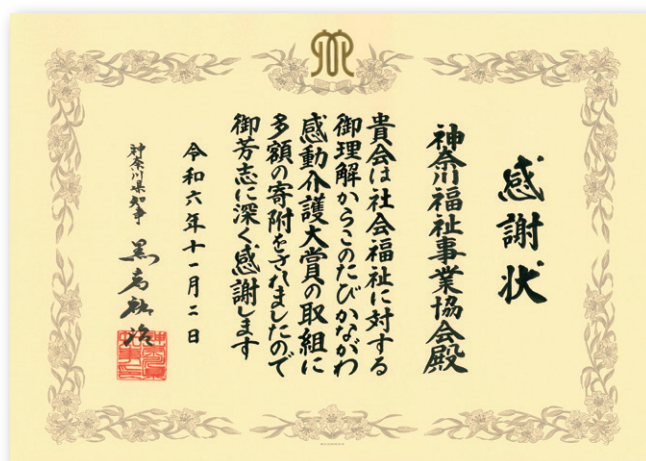 感謝状
神奈川福祉事業協会殿
貴会は社会福祉に対する
御理解からこのたびかながわ
感動介護大賞の取組に
多額の寄附をされましたので
御芳志に深く感謝します
令和六年十一月二日
神奈川県知事 黒岩祐治